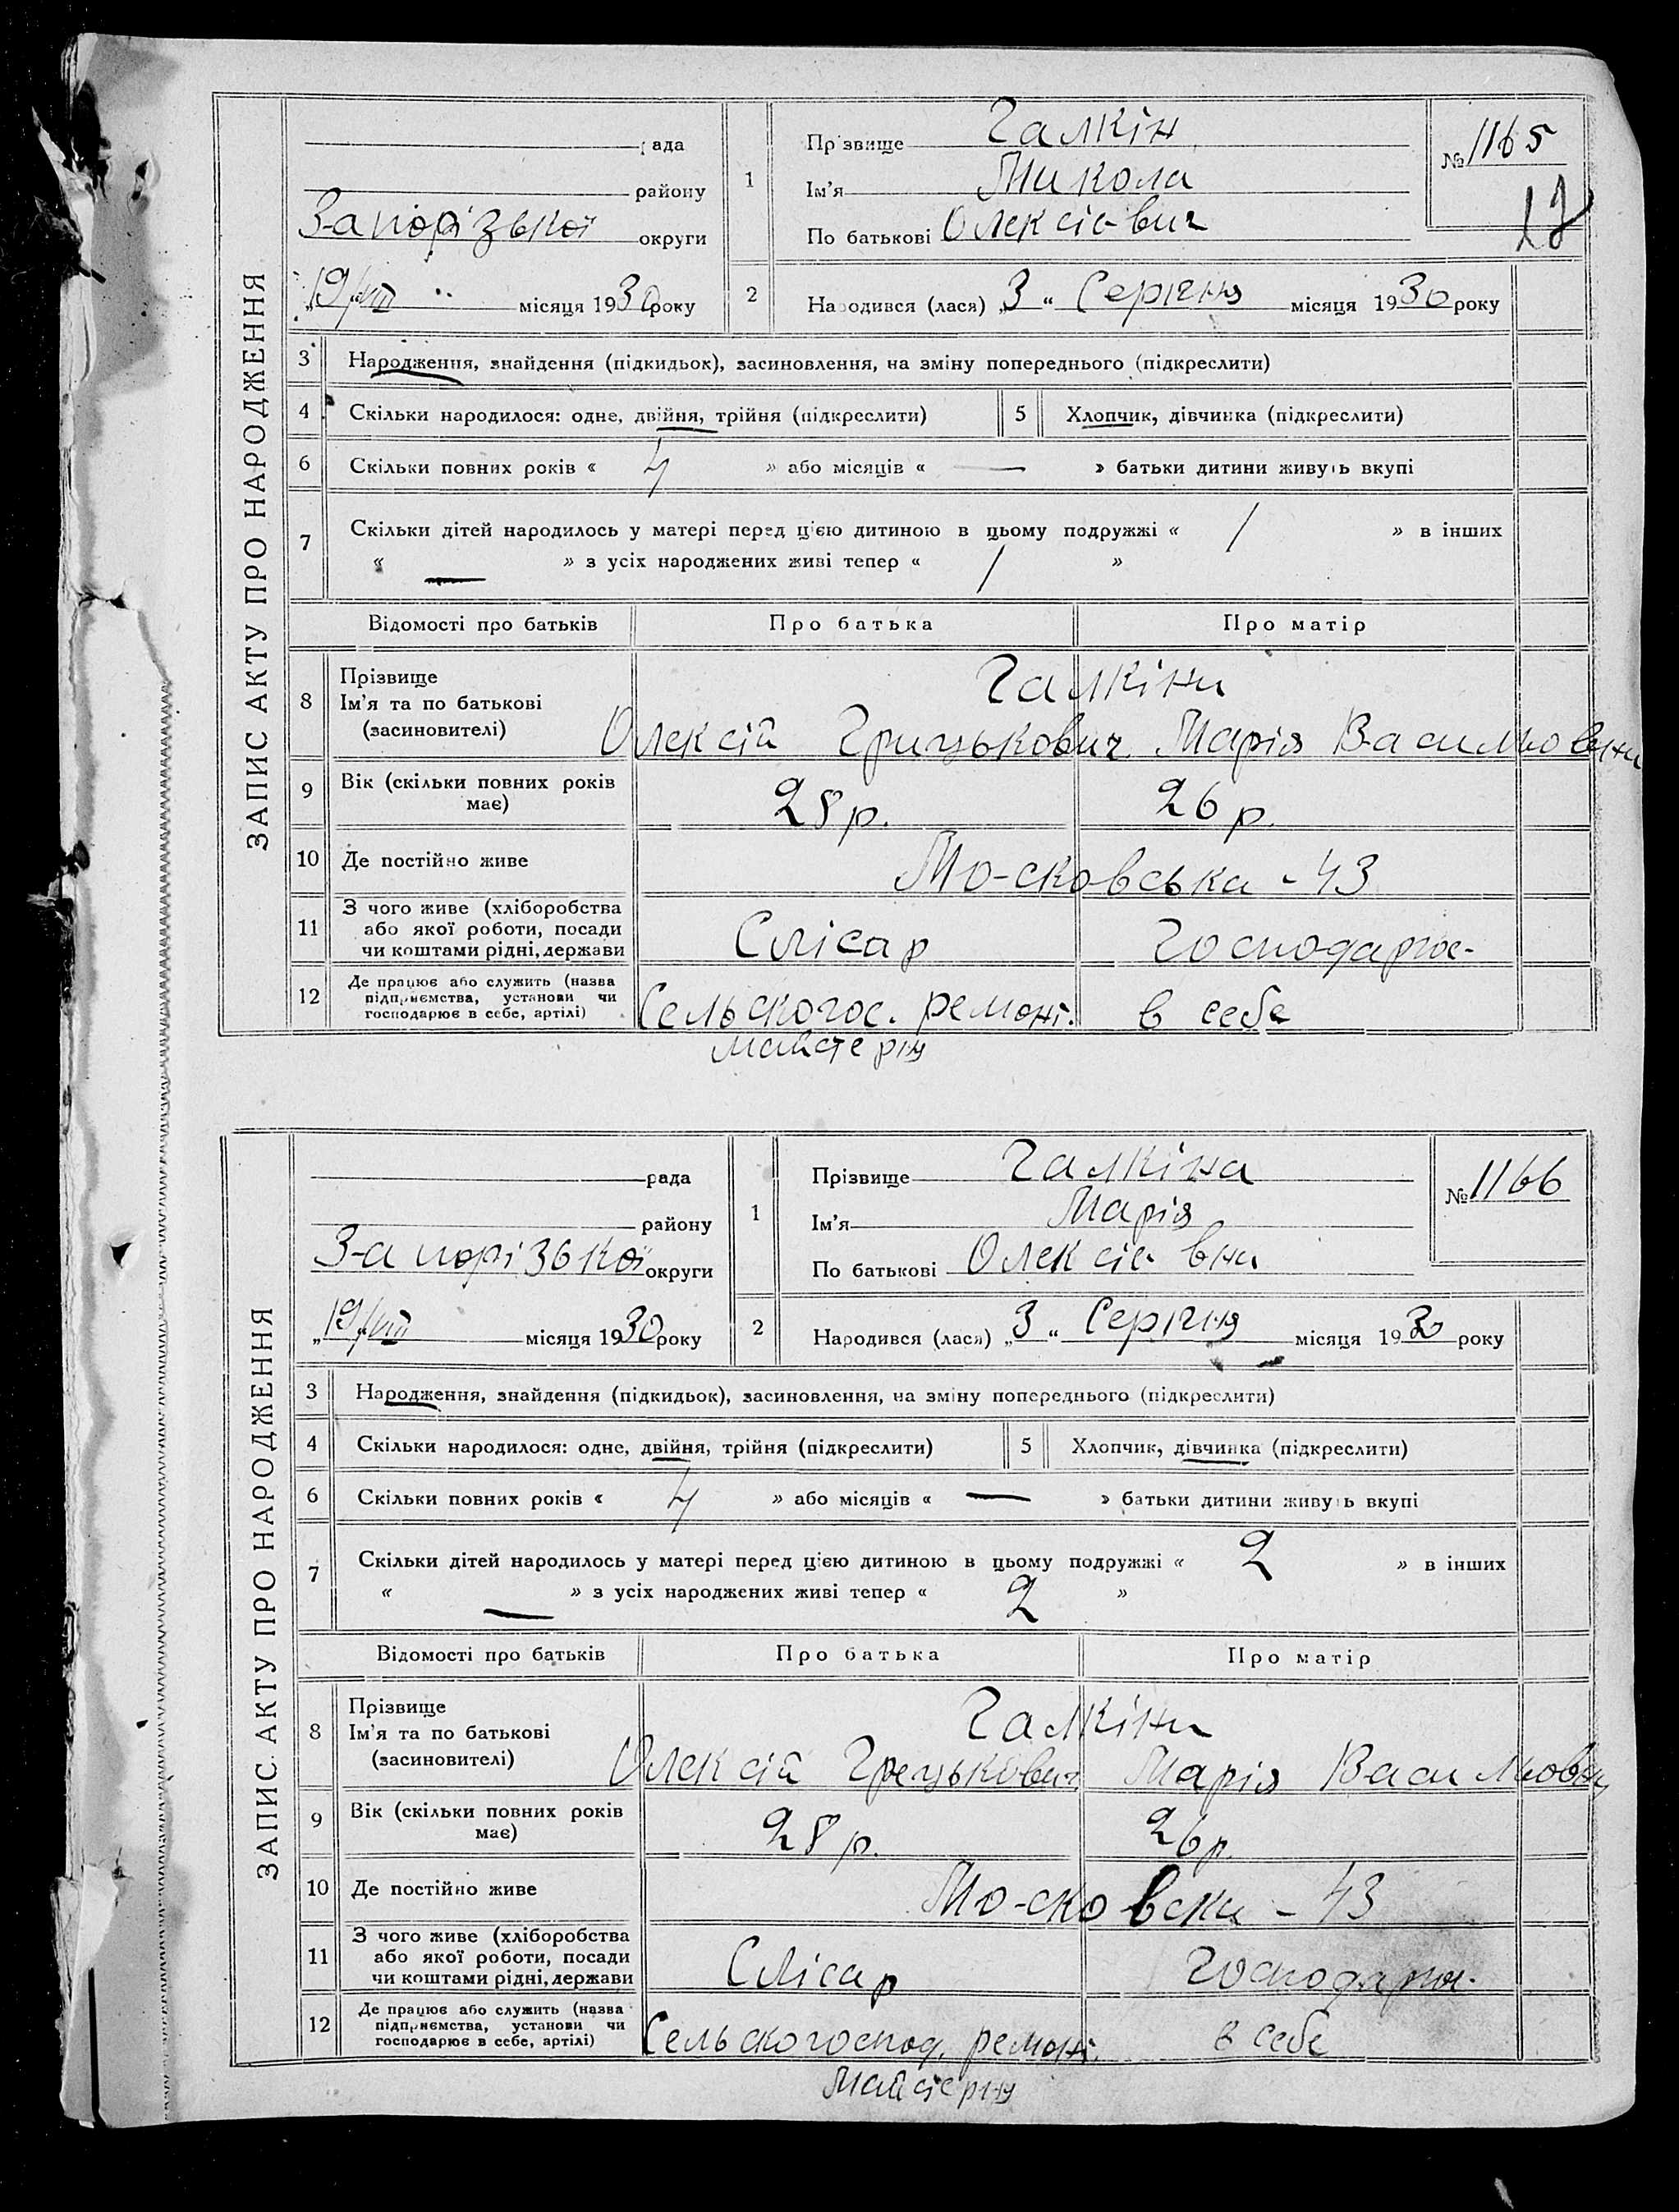 ЗАПИС АКТУ ПРО НАРОДЖЕННЯ
рада
району
Запорізької округи
„19/VIII“ місяця 1930 року
1
Прізвище Галкін
Ім'я Микола
По батькові Олексієвич
№ 1165
17
2 Народився (лася) „3“ Серпня місяця 1930 року
3 Народження, знайдення (підкидьок), засиновлення, на зміну попереднього (підкреслити)
4 Скільки народилося: одне, двійня, трійня (підкреслити) 5 Хлопчик, дівчинка (підкреслити)
6 Скільки повних років « 4 » або місяців « — » батьки дитини живуть вкупі
7 Скільки дітей народилось у матері перед цією дитиною в цьому подружжі « 1 » в інших
« — » з усіх народжених живі тепер « 1 »
Відомості про батьків Про батька Про матір
8 Прізвище
Ім'я та по батькові
(засиновителі)
Галкіни
Олексій Грицькович Марія Васильовни
9 Вік (скільки повних років
має)
28 р. 26 р.
10 Де постійно живе Московська - 43
11 З чого живе (хліборобства
або якої роботи, посади
чи коштами рідні, держави
Слісар Господарює-
12 Де працює або служить (назва
підприємства, установи чи
господарює в себе, артілі)
Сельскогос. ремонт. в себе
майстерня
ЗАПИС АКТУ ПРО НАРОДЖЕННЯ
рада
району
Запорізької округи
„19/VIII місяця 1930 року
1
Прізвище Галкіна
Ім'я Марія
По батькові Олексієвна
№ 1166
2 Народився (лася) „3“ Серпня місяця 1930 року
3 Народження, знайдення (підкидьок), засиновлення, на зміну попереднього (підкреслити)
4 Скільки народилося: одне, двійня, трійня (підкреслити) 5 Хлопчик, дівчинка (підкреслити)
6 Скільки повних років « 4 » або місяців « — » батьки дитини живуть вкупі
7 Скільки дітей народилось у матері перед цією дитиною в цьому подружжі « 2 » в інших
« — » з усіх народжених живі тепер « 2 »
Відомості про батьків Про батька Про матір
8 Прізвище
Ім'я та по батькові
(засиновителі)
Галкіни
Олексій Грецькович Марія Васильовн
9 Вік (скільки повних років
має)
28 р. 26 р.
10 Де постійно живе Московска - 43
11 З чого живе (хліборобства
або якої роботи, посади
чи коштами рідні, держави
Слісар Господарює-
12 Де працює або служить (назва
підприємства, установи чи
господарює в себе, артілі)
Сельскогоспод. ремонт. в себе
Майстерня